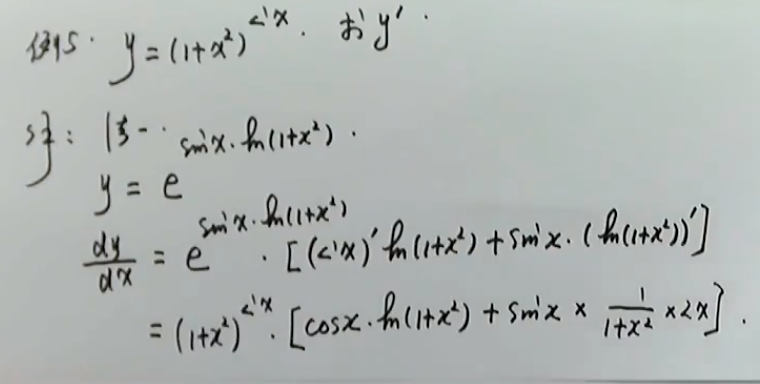 例5. y = (1+x²)^{sin x}. 求y'.
解: 法一.
y = e^{sin x · ln(1+x²)}.
dy/dx = e^{sin x · ln(1+x²)} · [(sin x)' ln(1+x²) + sin x · (ln(1+x²))']
= (1+x²)^{sin x} · [cos x · ln(1+x²) + sin x × 1/(1+x²) × 2x].